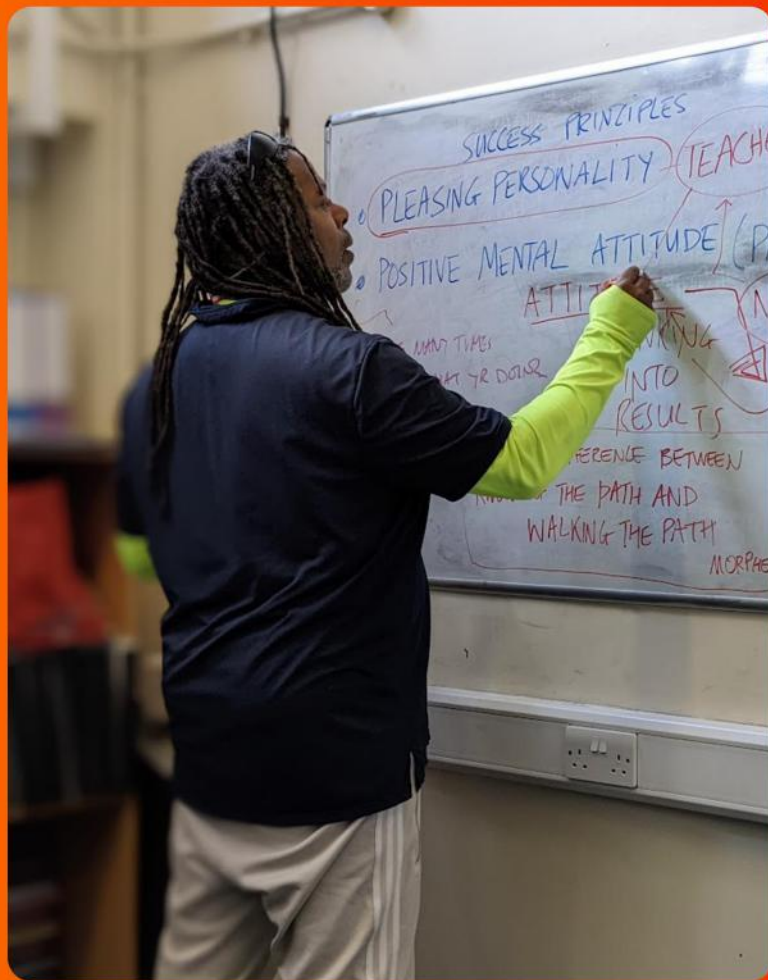 SUCCESS PRINZIPLES
• PLEASING PERSONALITY
TEACH
• POSITIVE MENTAL ATTITUDE (P
MANY TIMES
INTO
RESULTS
BETWEEN
THE PATH AND
WALKING THE PATH
MORPHE